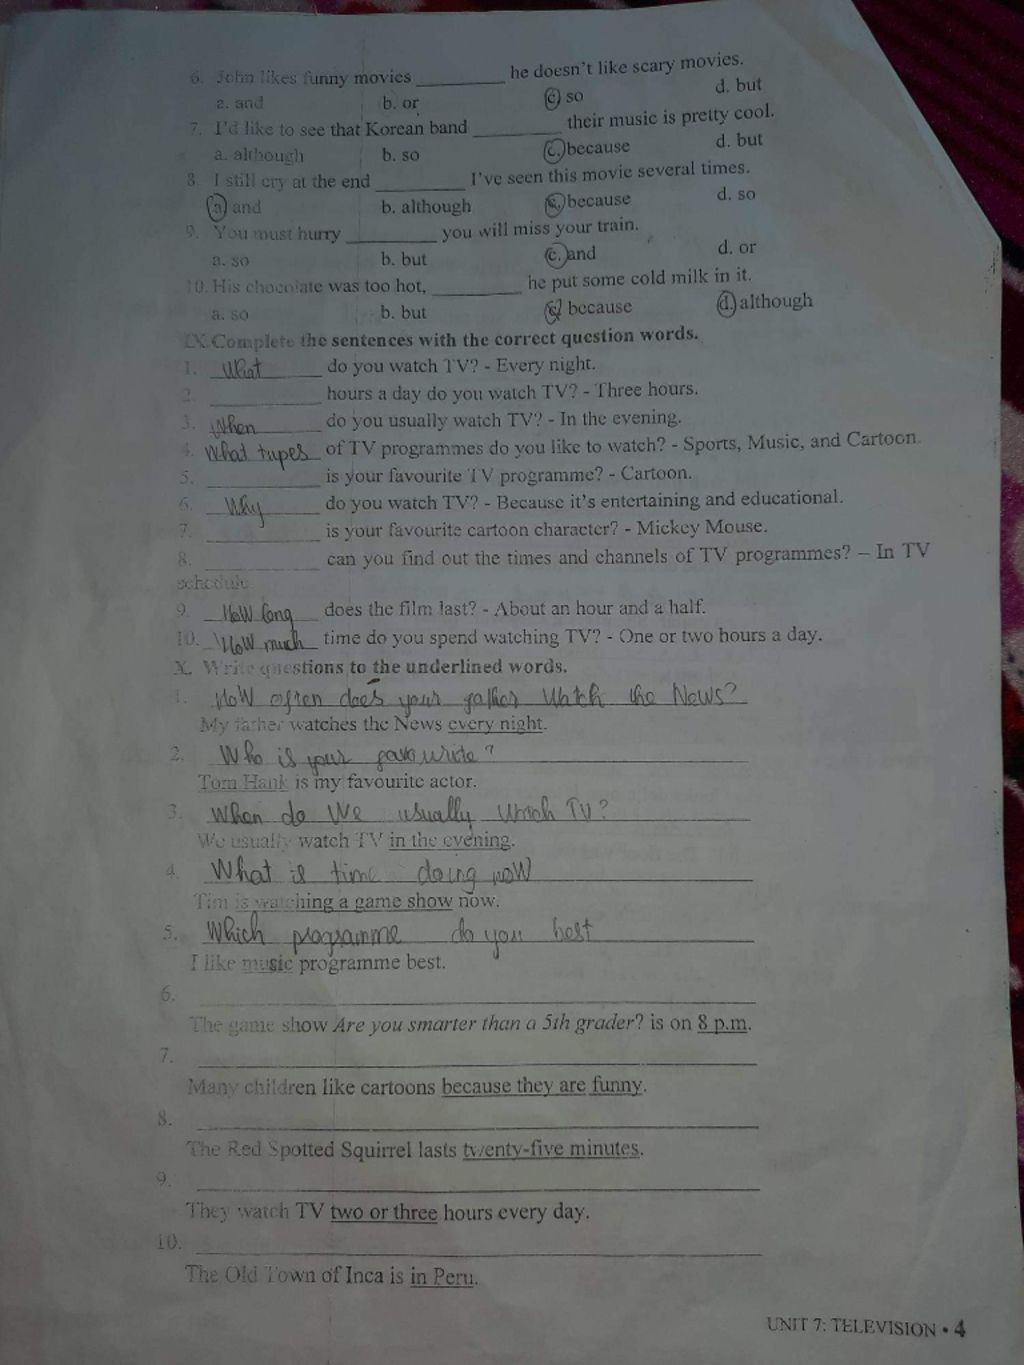 6. John likes funny movies __________ he doesn't like scary movies.
a. and b. or c. so d. but
7. I'd like to see that Korean band __________ their music is pretty cool.
a. although b. so c. because d. but
8. I still cry at the end __________ I've seen this movie several times.
a. and b. although c. because d. so
9. You must hurry __________ you will miss your train.
a. so b. but c. and d. or
10. His chocolate was too hot, __________ he put some cold milk in it.
a. so b. but c. because d. although
IX. Complete the sentences with the correct question words.
1. What do you watch TV? - Every night.
2. __________ hours a day do you watch TV? - Three hours.
3. When do you usually watch TV? - In the evening.
4. What tupes of TV programmes do you like to watch? - Sports, Music, and Cartoon.
5. __________ is your favourite TV programme? - Cartoon.
6. Why do you watch TV? - Because it's entertaining and educational.
7. __________ is your favourite cartoon character? - Mickey Mouse.
8. __________ can you find out the times and channels of TV programmes? – In TV
schedule
9. How long does the film last? - About an hour and a half.
10. How much time do you spend watching TV? - One or two hours a day.
X. Write questions to the underlined words.
1. How often does your father Watch the News?
My father watches the News every night.
2. Who is your favourite?
Tom Hank is my favourite actor.
3. When do We usually Watch TV?
We usually watch TV in the evening.
4. What is time doing noW
Tim is watching a game show now.
5. Which programme do you best
I like music programme best.
6.
The game show Are you smarter than a 5th grader? is on 8 p.m.
7.
Many children like cartoons because they are funny.
8.
The Red Spotted Squirrel lasts twenty-five minutes.
9.
They watch TV two or three hours every day.
10.
The Old Town of Inca is in Peru.
UNIT 7: TELEVISION • 4